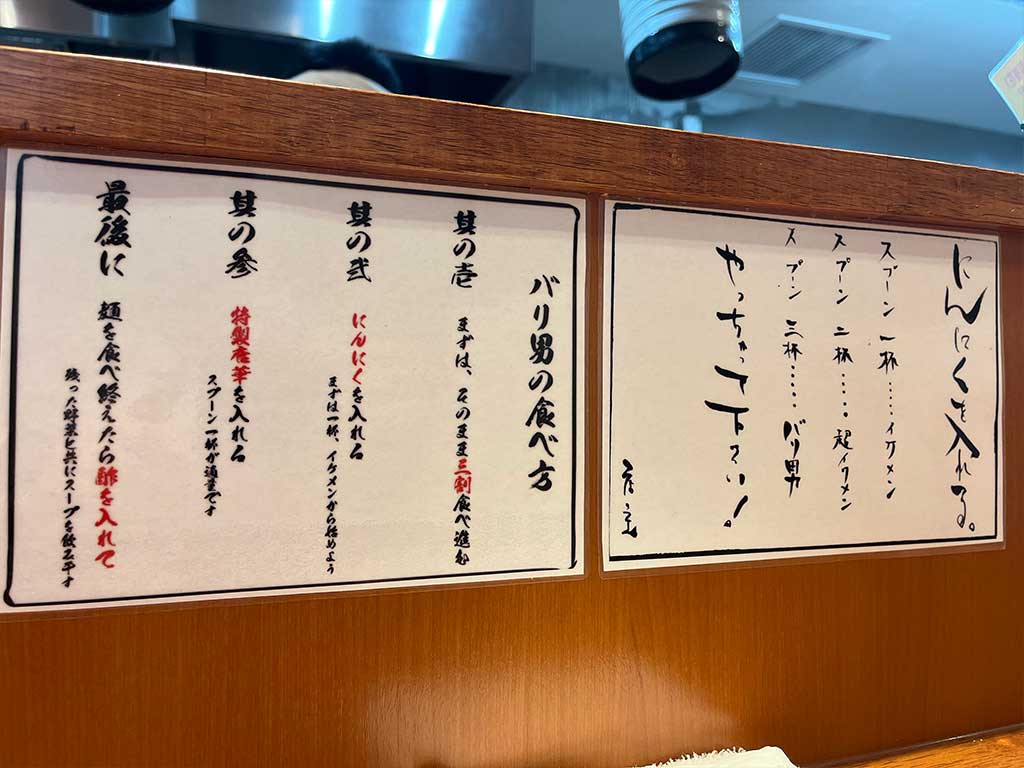 にんにくを入れる。
スプーン 一杯……イケメン
スプーン 二杯……超イケメン
スプーン 三杯……バリ男
やっちゃって下さい!
店主
バリ男の食べ方
其の壱 まずは、そのまま三割食べ進む
其の弐 にんにくを入れる
まずは一杯、イケメンから始めよう
其の参 特製唐華を入れる
スプーン一杯が適量です
最後に 麺を食べ終えたら酢を入れて
残った野菜と共にスープを飲み干す